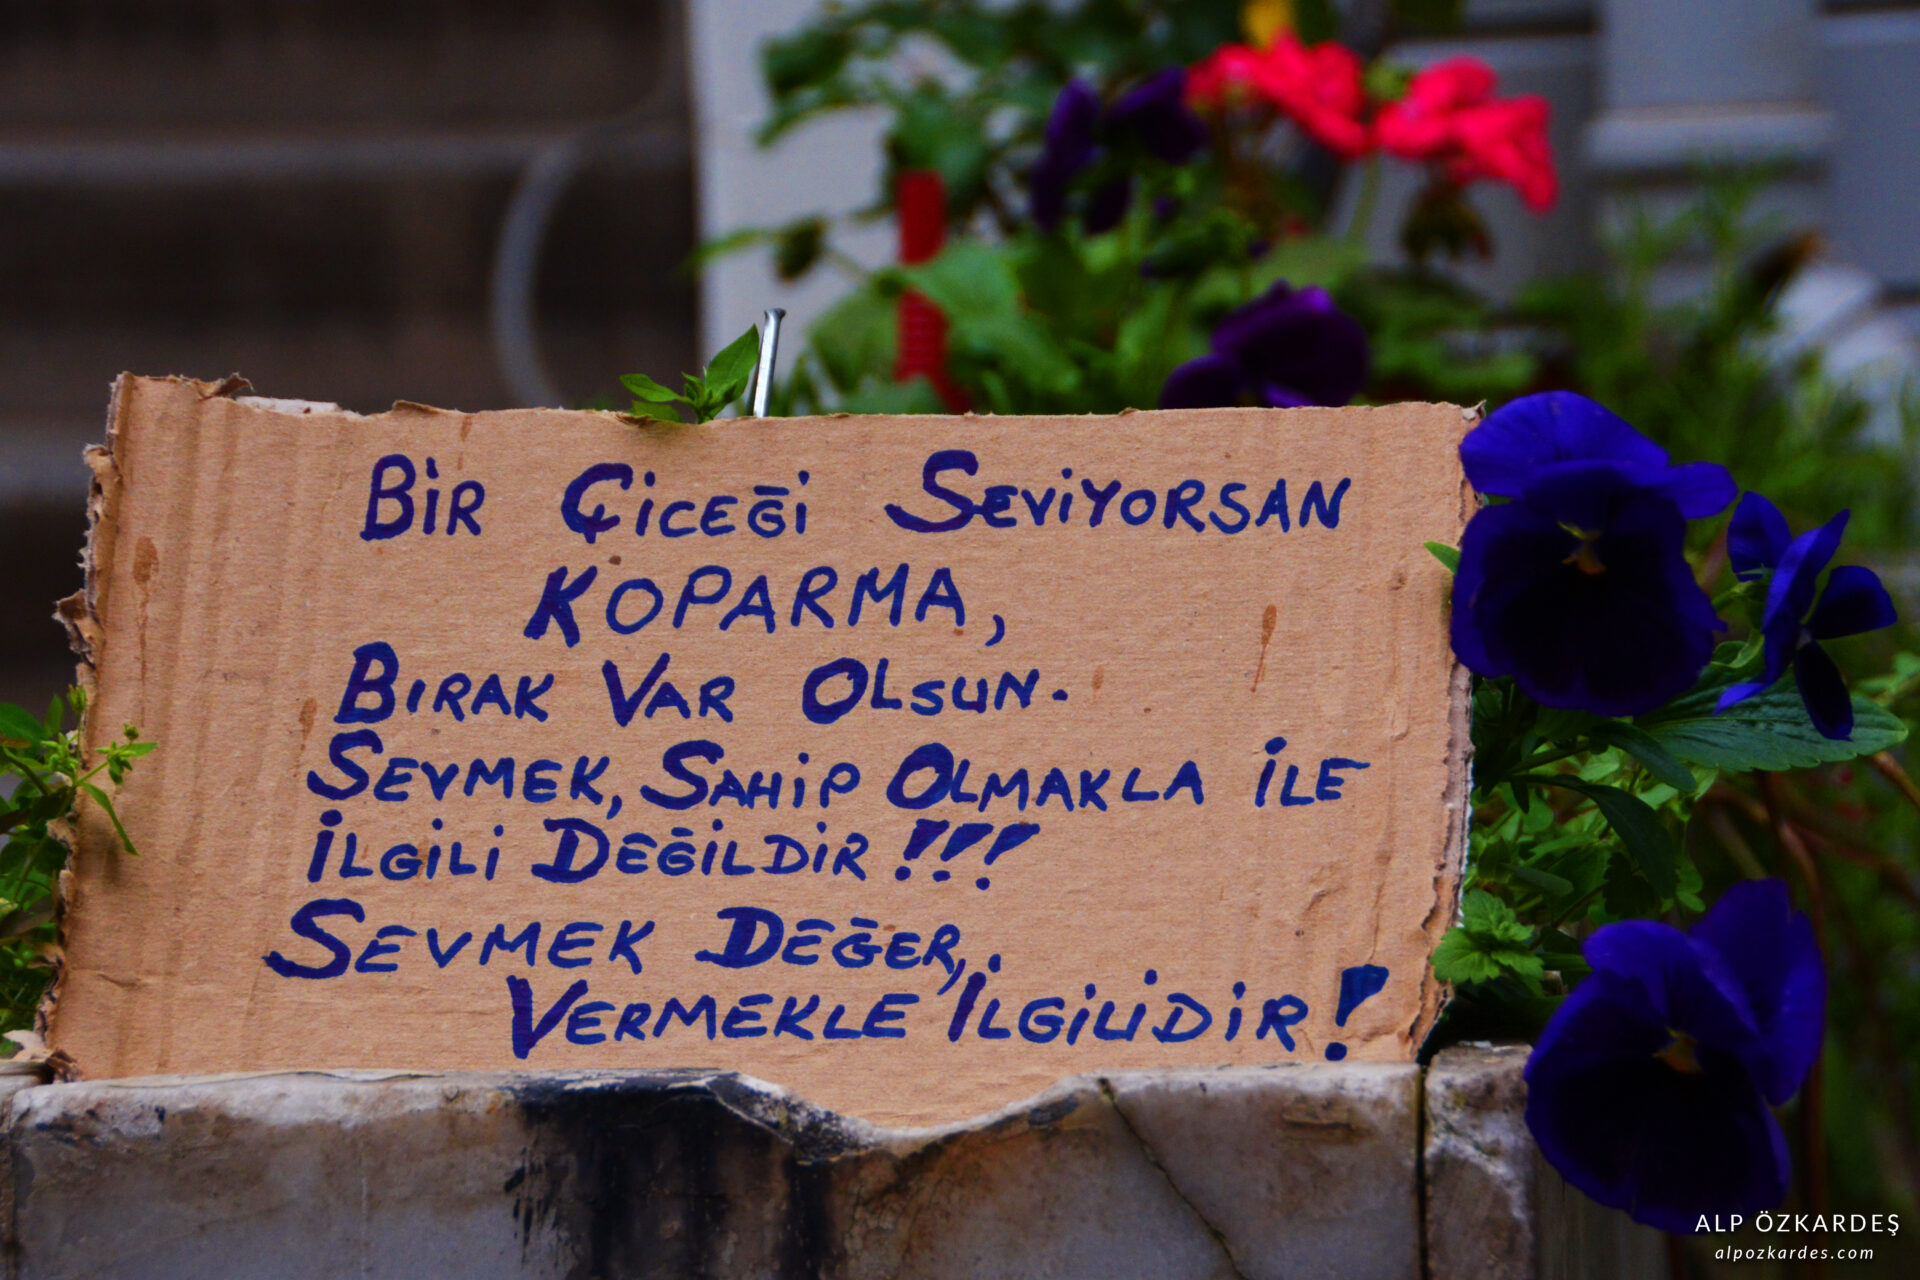 BİR ÇİCEĞİ SEVİYORSAN
KOPARMA,
BIRAK VAR OLSUN.
SEVMEK, SAHİP OLMAKLA İLE
İLGİLİ DEĞİLDİR!!!
SEVMEK DEĞER,
VERMEKLE İLGİLİDİR!
ALP ÖZKARDEŞ
alpozkardes.com